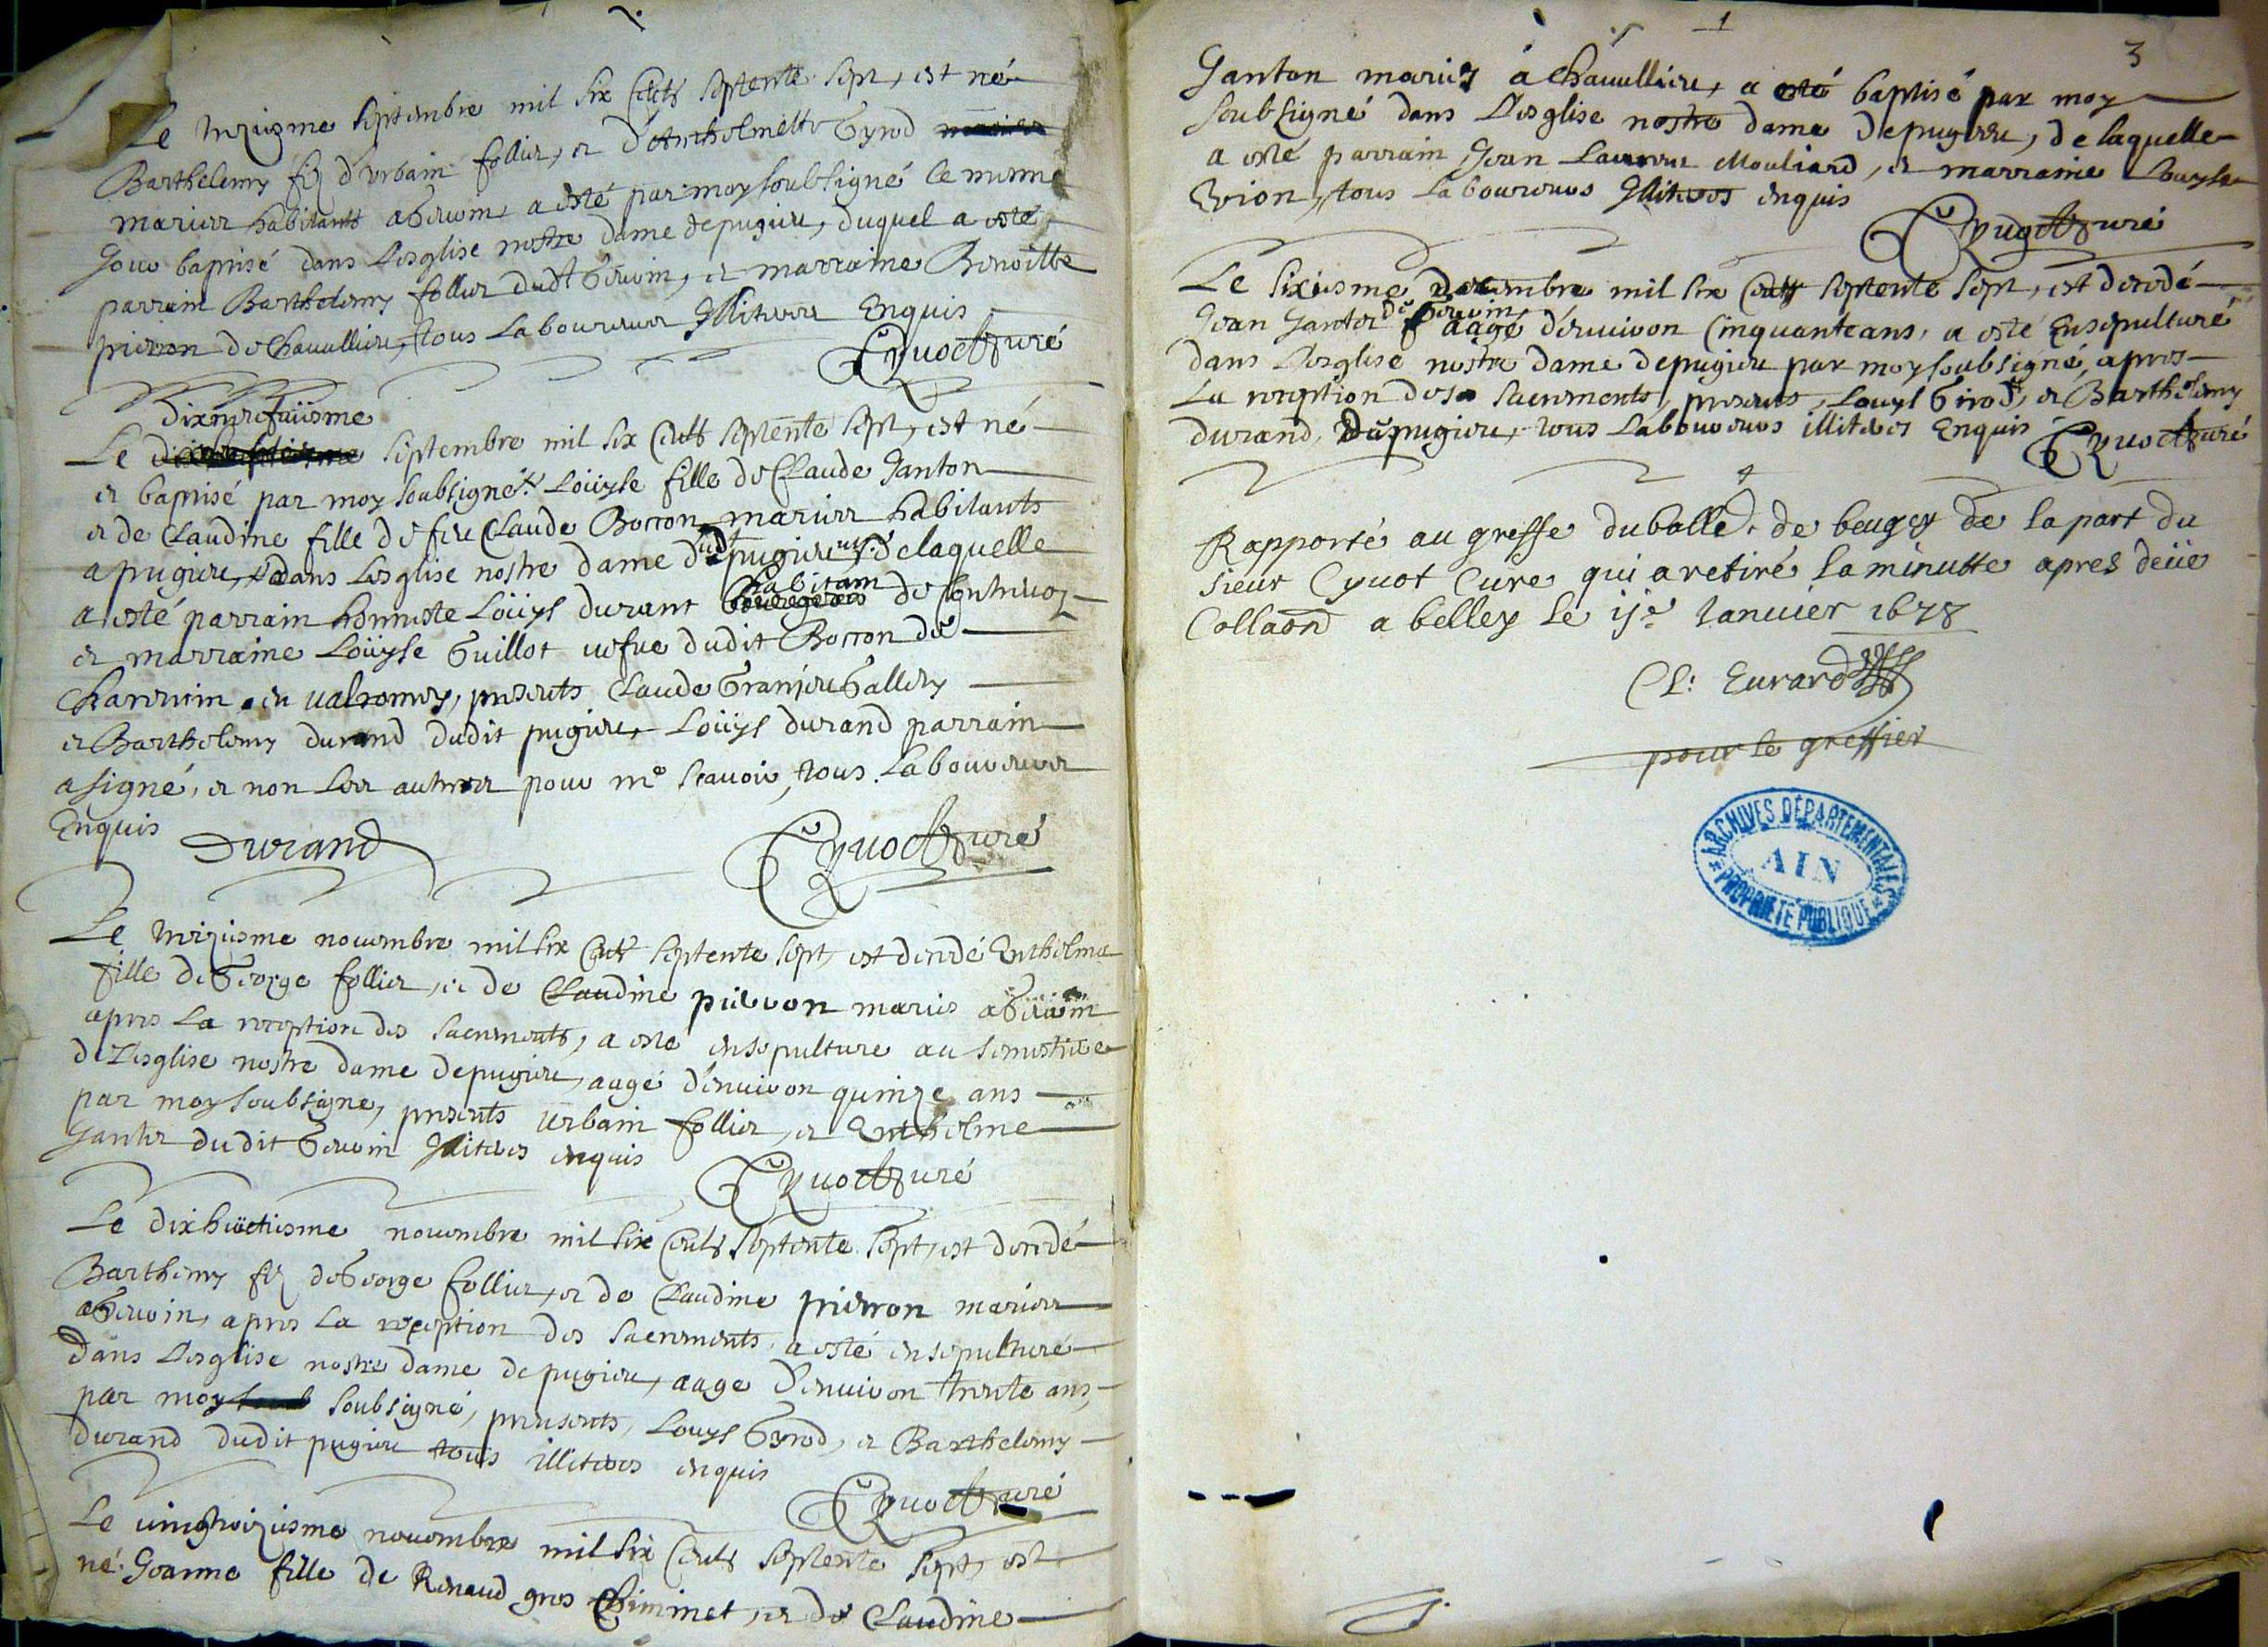 Le treziesme septembre mil six cents septente sept, est né
Barthelemy fiz d'urbain follier, et d'Antholmette Gyrod
mariez habitants a Gervin, a esté par moy soubsigné le mesme
jour baptisé dans L'esglise nostre dame de pugieu, duquel a esté
parrain Barthelemy follier dudt Gervin, et marraine Benoitte
pierron de Chavillieu, tous Laboureurs Illiteres Enquis
Cyuot Curé
dixneufuiesme
Le septembre mil six cents septente sept, est né
et baptisé par moy soubsigné Loüyse fille de Claude Janton
et de Claudine fille de feu Claude Borron mariez habitants
a pugieu, dans L'esglise nostre dame dudt pugieu, de laquelle
a esté parrain honneste Loüys durant habitant de Contrevoz
et marraine Loüyse Guillot vefve dudit Borron de
Charvein en valromey, presents Claude Granjeu Gallery
et Barthelemy durand dudit pugieu, Loüys durand parrain
a signé, et non les autres pour ne scavoir, tous Laboureurs
Enquis
Durand
Cyuot Curé
Le treziesme novembre mil six cents septente sept, est dendé Entholme
fille de George follier, et de Claudine pierron mariés a Gervin
apres La reception des sacrements, a esté ensepulture au semistiere
de L'esglise nostre dame de pugieu, aagé d'environ quinze ans
par moy soubsigne, presents urbain follier, et Entholme
Janter dudit Gervin Illiteres enquis
Cyuot Curé
Le dixhuictiesme novembre mil six cents septente sept, est dendé
Barthemy fiz de George follier, et de Claudine pierron mariez
a Gervin, apres La reception des sacrements, a esté ensepulturé
dans L'esglise nostre dame de pugieu, aage d'environ trente ans,
par moy soubsigné, presents, Louys Gyrod, et Barthelemy
durand dudit pugieu tous illiteres enquis
Cyuot Curé
Le vingtroiziesme novembre mil six cents septente sept, est
né Jeanne fille de Renaud gros Chiminet, et de Claudine
1
3
Janton mariez á Chavillieu, a esté baptisé par moy
soubsigné dans L'esglise nostre dame de pugieu, de laquelle
a esté parrain Jean Laurens Mouliard, et marraine Louyse
Evion, tous Laboureurs Illiteres enquis
Cyuot Curé
Le sixiesme decembre mil six cents septente sept, est decedé
Jean Janter de Gervin aagé d'environ Cinquante ans, a esté Ensepulturé
dans L'esglise nostre dame de pugieu par moy soubsigné, apres
La reception des sacrements, presents, Louys Girod, et Barthelemy
durand, de pugieu, tous Laboureurs illiteres Enquis
Cyuot Curé
Rapporté au greffe du balle. de beugey de la part du
sieur Cyuot Cure qui a retiré la minutte apres deüe
Collaon a belley le ije Januier 1678
Cl: Eurard
pour le greffier
ARCHIVES DÉPARTEMENTALES
AIN
PROPRIÉTÉ PUBLIQUE